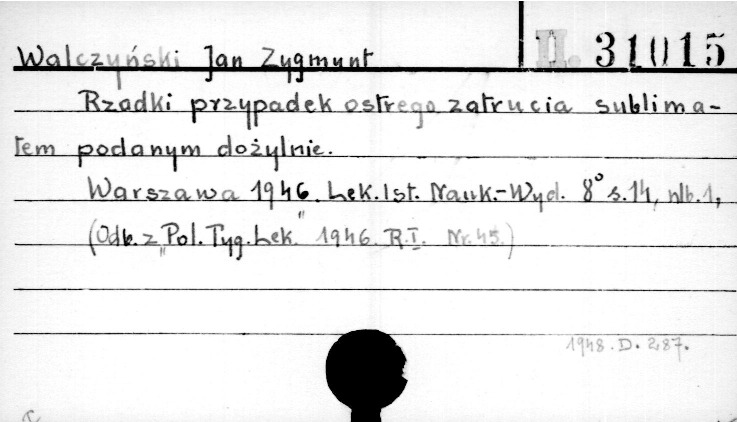 II. 31015
Walczyński Jan Zygmunt
Rzadki przypadek ostrego zatrucia sublima-
tem podanym dożylnie.
Warszawa 1946. Lek. Ist. Nauk.-Wyd. 8° s. 14, nlb. 1,
(Odb. z „Pol. Tyg. Lek." 1946. R. I. Nr. 45.)
1948. D. 287.